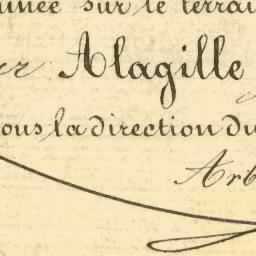 sur le terrai
Alagille
sous la direction du
Arb